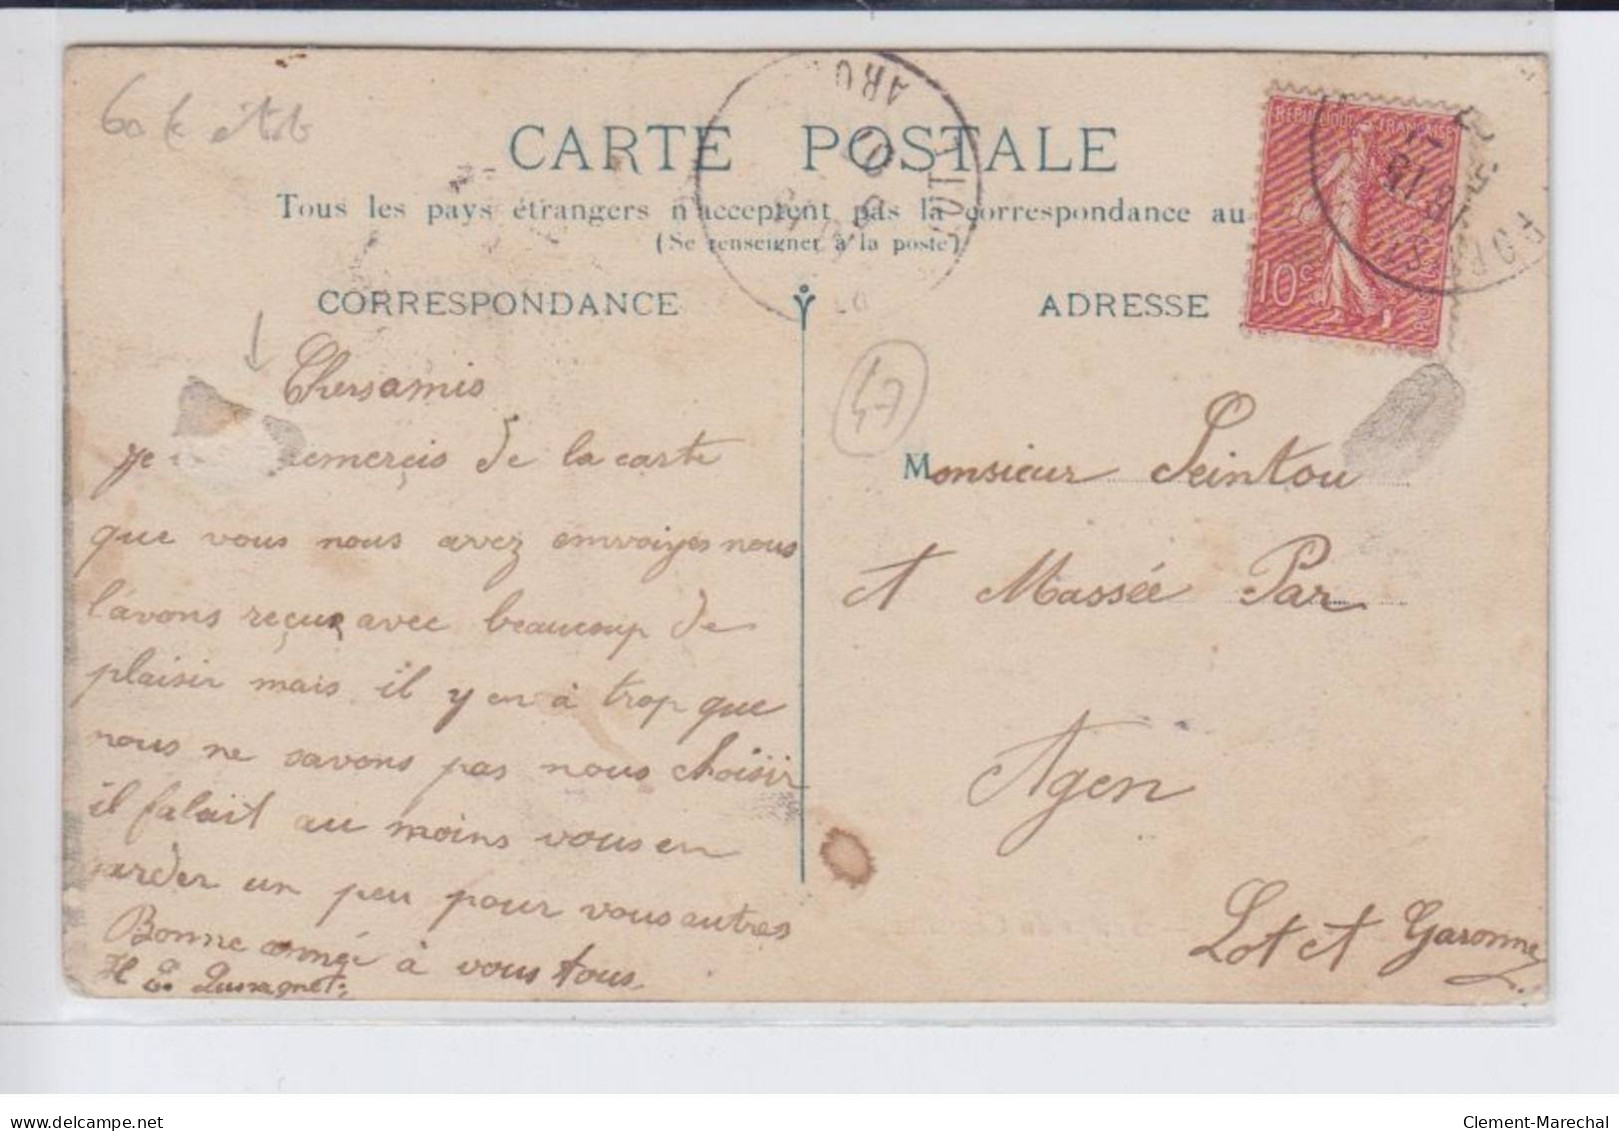 CARTE POSTALE
Tous les pays étrangers n'acceptent pas la correspondance au
(Se renseigner à la poste)
CORRESPONDANCE
ADRESSE
RÉPUBLIQUE FRANÇAISE
10c
47
Chers amis
je remerçis de la carte
que vous nous avez envoiyes nous
l'avons reçue avec beaucoup de
plaisir mais il y en à trop que
nous ne savons pas nous choisir
il falait au moins vous en
garder un peu pour vous autres
Bonne année à vous tous
Monsieur Peintou
et Massée Par
Agen
Lot et Garonne
delcampe.net
Clement-Marechal